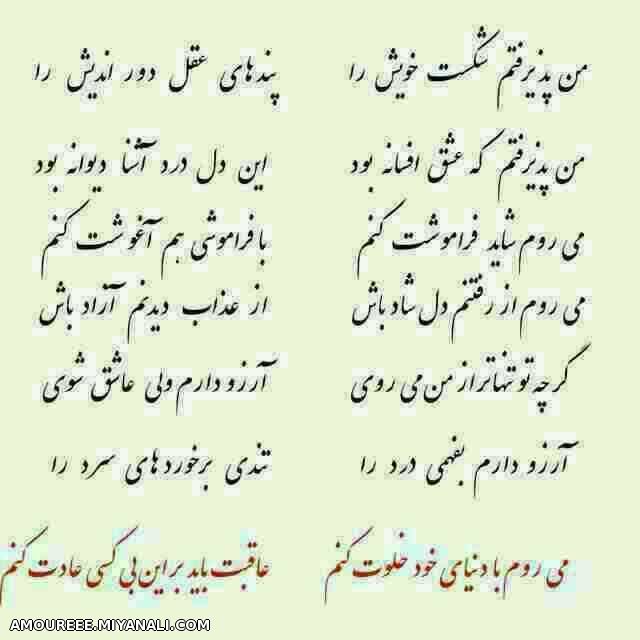 من پذیرفتم شکست خویش را پندهای عقل دور اندیش را
من پذیرفتم که عشق افسانه بود این دل درد آشنا دیوانه بود
می روم شاید فراموشت کنم با فراموشی هم آغوشت کنم
می روم از رفتنم دل شاد باش از عذاب دیدنم آزاد باش
گرچه تو تنهاتر از من می روی آرزو دارم ولی عاشق شوی
آرزو دارم بفهمی درد را تندی برخوردهای سرد را
می روم با دنیای خود خلوت کنم عاقبت باید بر این بی کسی عادت کنم
AMOUREEE.MIYANALI.COM